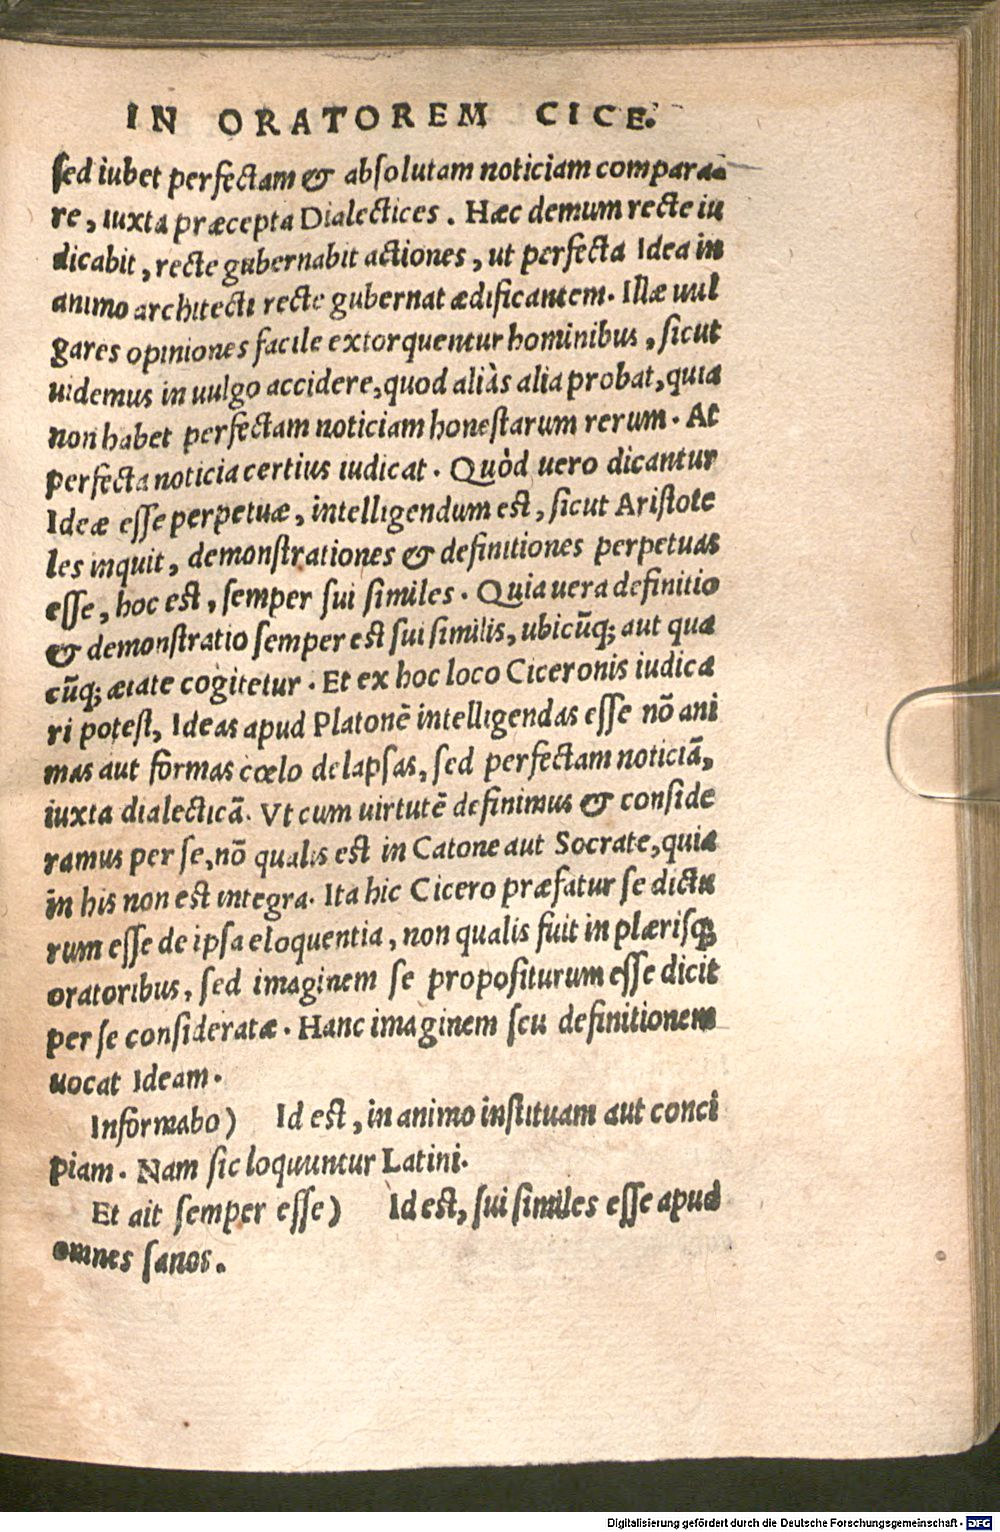 IN ORATOREM CICE.
sed iubet perfectam & absolutam noticiam compara
re, iuxta præcepta Dialectices. Hæc demum recte iu
dicabit, recte gubernabit actiones, ut perfecta Idea in
animo architecti recte gubernat ædificantem. Illæ uul
gares opiniones facile extorquentur hominibus, sicut
uidemus in uulgo accidere, quod aliàs alia probat, quia
non habet perfectam noticiam honestarum rerum. At
perfecta noticia certius iudicat. Quòd uero dicantur
Ideæ esse perpetuæ, intelligendum est, sicut Aristote
les inquit, demonstrationes & definitiones perpetuas
esse, hoc est, semper sui similes. Quia uera definitio
& demonstratio semper est sui similis, ubicūq; aut qua
cūq; ætate cogitetur. Et ex hoc loco Ciceronis iudica
ri potest, Ideas apud Platonē intelligendas esse nō ani
mas aut formas cœlo delapsas, sed perfectam noticiā,
iuxta dialecticā. Vt cum uirtutē definimus & conside
ramus per se, nō qualis est in Catone aut Socrate, quia
in his non est integra. Ita hic Cicero præfatur se dictu
rum esse de ipsa eloquentia, non qualis fuit in plærisq;
oratoribus, sed imaginem se propositurum esse dicit
per se consideratæ. Hanc imaginem seu definitionem
uocat Ideam.
Informabo) Id est, in animo instituam aut conci
piam. Nam sic loquuntur Latini.
Et ait semper esse) Id est, sui similes esse apud
omnes sanos.
Digitalisierung gefördert durch die Deutsche Forschungsgemeinschaft - DFG